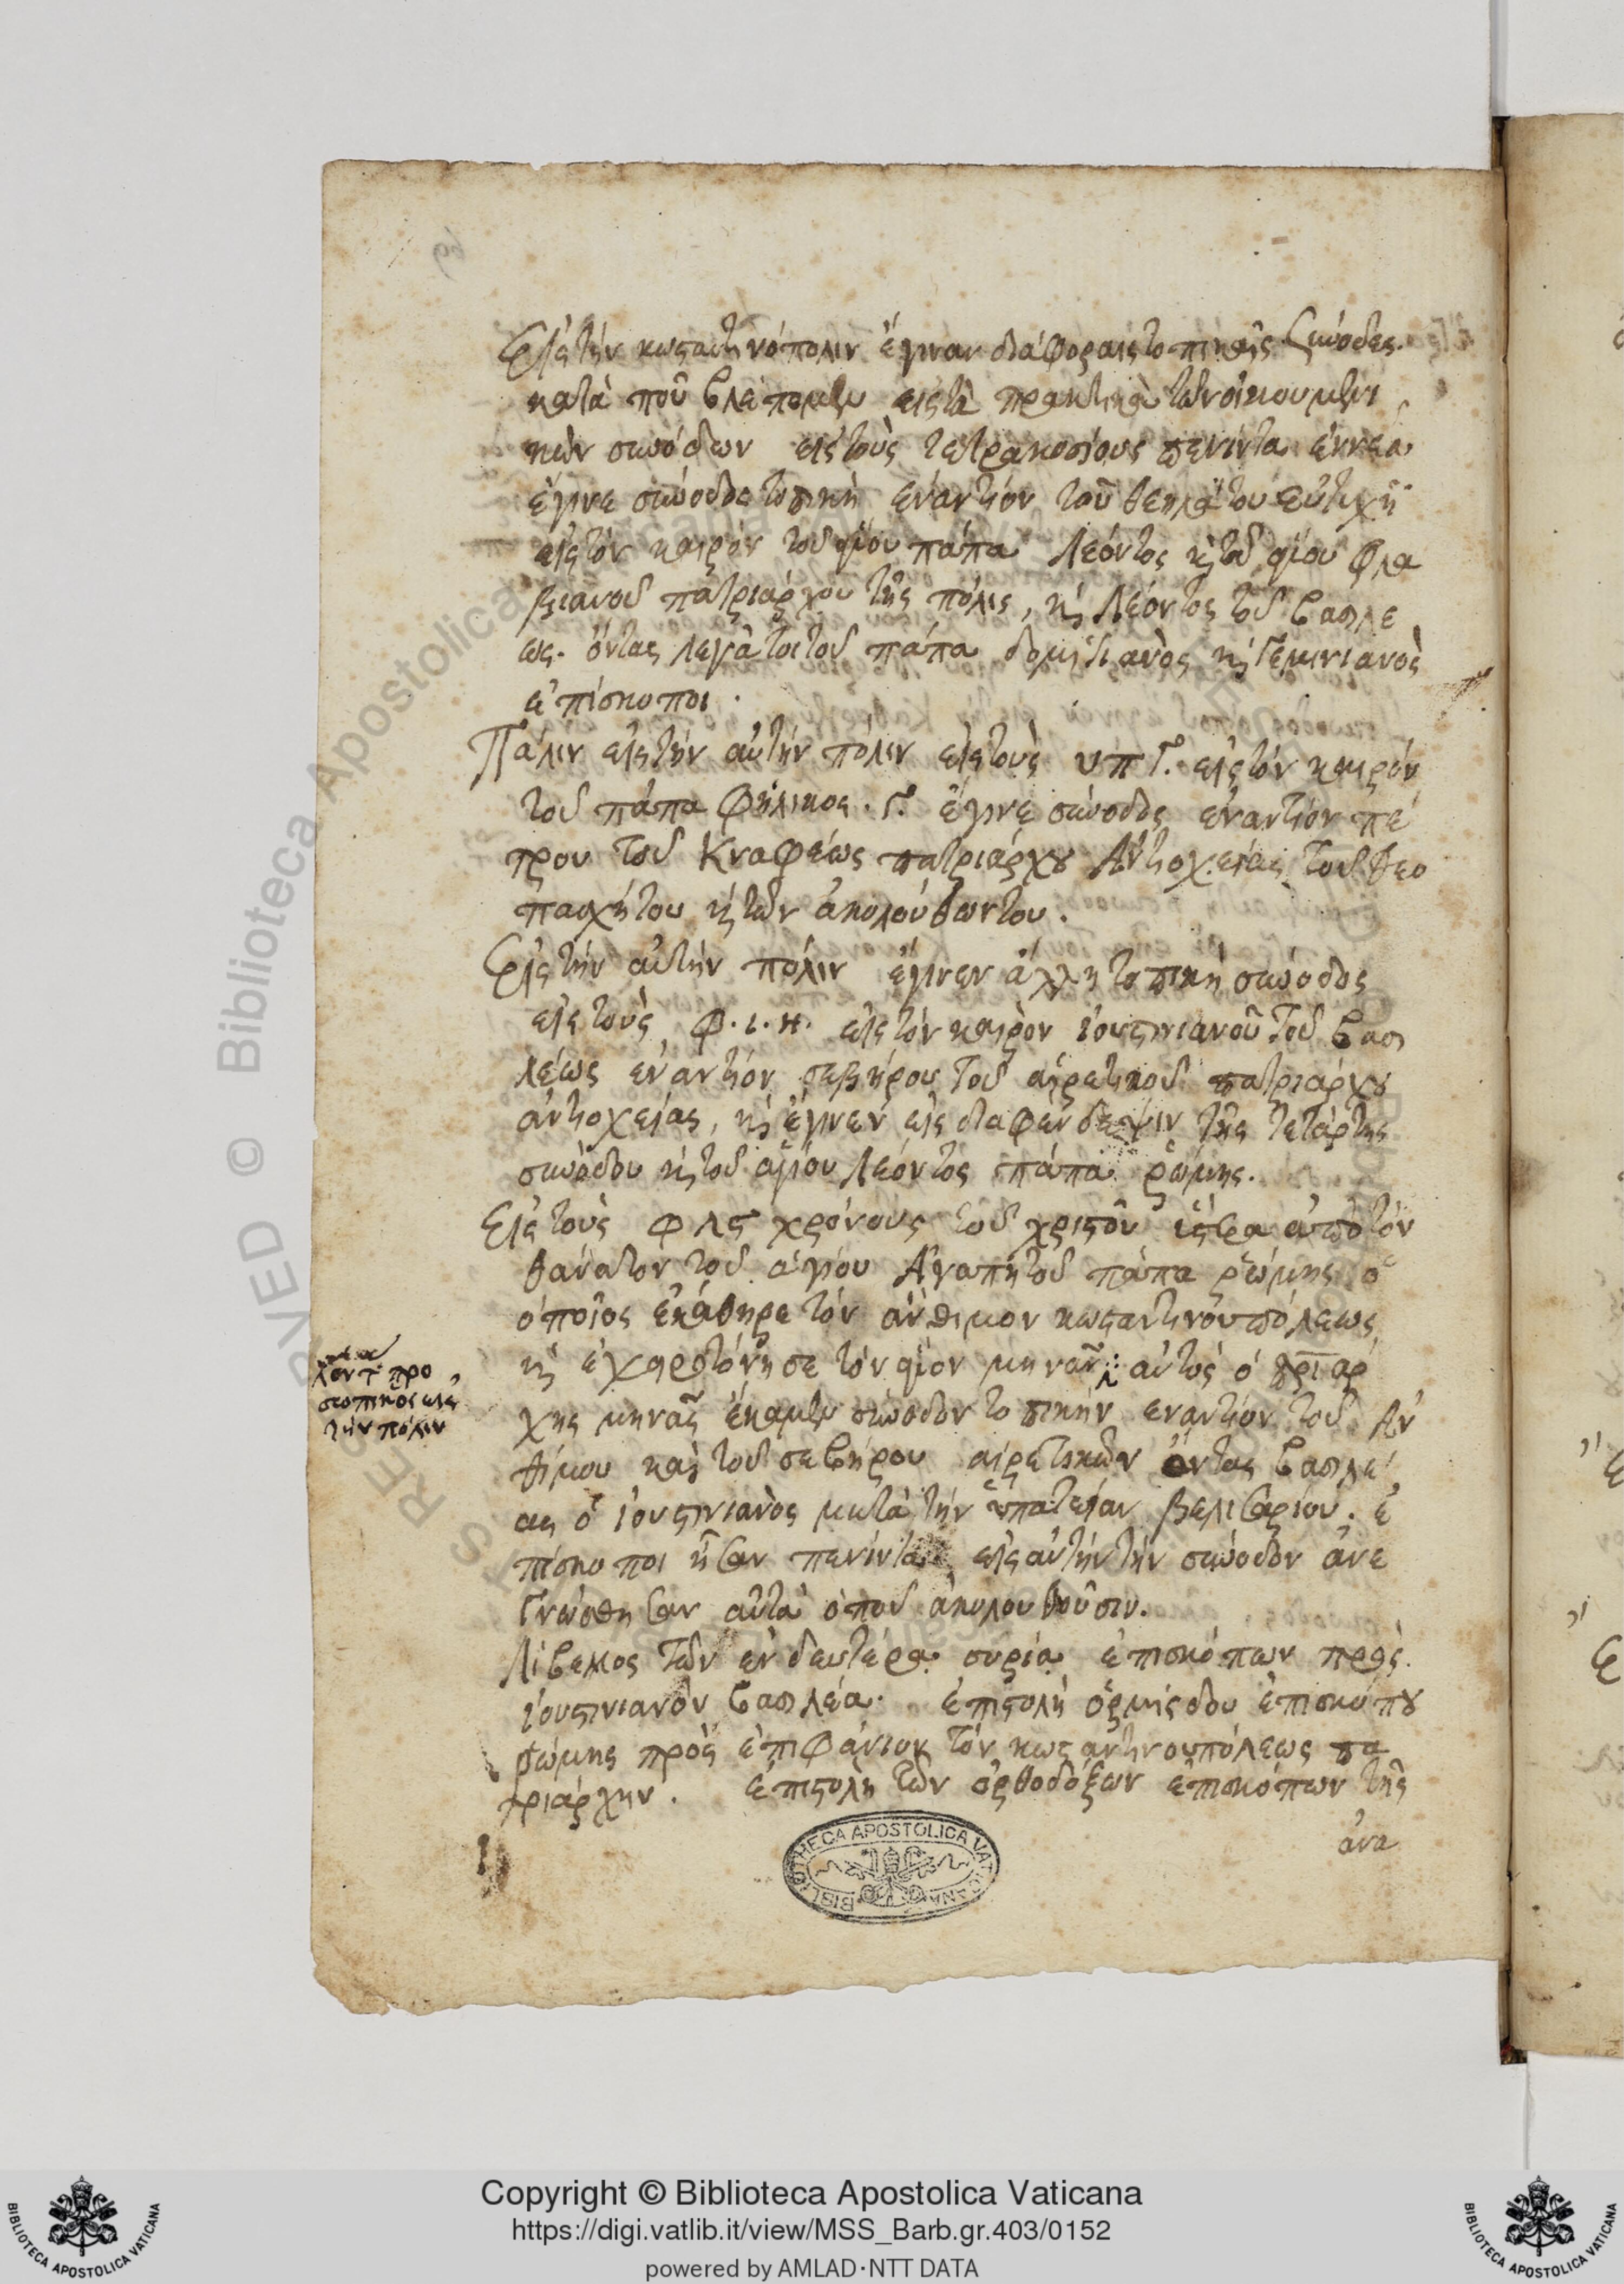 Εἰς τὴν κωσταντινόπολιν ἔγιναν διάφοραις τοπικαῖς σύνοδες.
κατὰ ποῦ βλέπομεν εἰς τὰ πρακτικὰ τῶν οἰκουμενι
κῶν συνόδων εἰς τοὺς τετρακοσίους πενῖντα ἐννεα
ἔγινε σύνοδος τοπικὴ ἐναντίον τοῦ θεηλάτου εὐτυχῆ
εἰς τὸν καιρὸν τοῦ ἁγίου πάπα Λεόντος κ τοῦ ἁγίου Φλα
βιανοῦ πατριάρχου τῆς πόλις, κ Λεόντος τοῦ βασιλε
ως. ὄντας λεγάτοι τοῦ πάπα δομιτιανὸς κ Γεμινιανὸς
ἐπίσκοποι.
Πάλιν εἰς τὴν αὐτὴν πόλιν εἰς τοὺς υπγ. εἰς τὸν καιρὸν
τοῦ πάπα Φήλικος. γ. ἔγινε σύνοδος ἐναντίον πέ
τρου τοῦ Κναφέως πατριάρχου Ἀντιοχείας τοῦ θεο
πασχήτου κ τῶν ἀκολούθων του.
Εἰς τὴν αὐτὴν πόλιν ἔγινεν ἄλλη τοπικὴ σύνοδος
εἰς τοὺς φ.ι.η. εἰς τὸν καιρὸν ἰουστινιανοῦ τοῦ βασι
λέως ἐναντίον σεβήρου τοῦ αἱρετικοῦ πατριάρχου
ἀντιοχείας, κ ἔγινεν εἰς διαφέντεψιν τῆς τετάρτης
συνόδου κ τοῦ ἁγίου Λεόντος πάπα ῥώμης.
Εἰς τοὺς φλϛ χρόνους τοῦ χριστοῦ ὕστερα ἀπὸ τὸν
θάνατον τοῦ ἁγίου Ἀγαπητοῦ πάπα ῥώμης ὁ
ὁποῖος ἐκάθηρε τὸν ἄνθιμον κωσταντινουπόλεως
κ ἐχειροτόνησε τὸν ἁγιον μηνᾶν αὐτὸς ὁ πριάρ
χης μηνᾶς ἔκαμεν σύνοδον τοπικὴν ἐναντίον τοῦ Ἀν
θίμου καὶ τοῦ σεβήρου αἱρετικῶν ὄντας βασιλέ
ας ὁ ἰουστινιανὸς μετὰ τὴν ὑπατείαν βελισαρίου. ἐ
πίσκοποι ἦσαν πενίντα εἰς αὐτὴν τὴν σύνοδον ἀνε
γνώσθησαν αὐτὰ ὁποῦ ἀκολουθοῦσιν.
Λίβελλος τῶν ἐν δευτέρα συρία ἐπισκόπων πρὸς
ἰουστινιανὸν βασιλέα. ἐπιστολὴ ὁρμίσδου ἐπισκόπου
ῥώμης πρὸς ἐπιφάνιον τὸν κωσταντινουπόλεως πα
τριάρχην. ἐπιστολὴ τῶν ὀρθοδόξων ἐπισκόπων τῆς
ἀνα
προ
σοπικος εἰς
τὴν πόλιν
BIBLIOTHECA APOSTOLICA VATICANA
Copyright © Biblioteca Apostolica Vaticana
https://digi.vatlib.it/view/MSS_Barb.gr.403/0152
powered by AMLAD·NTT DATA